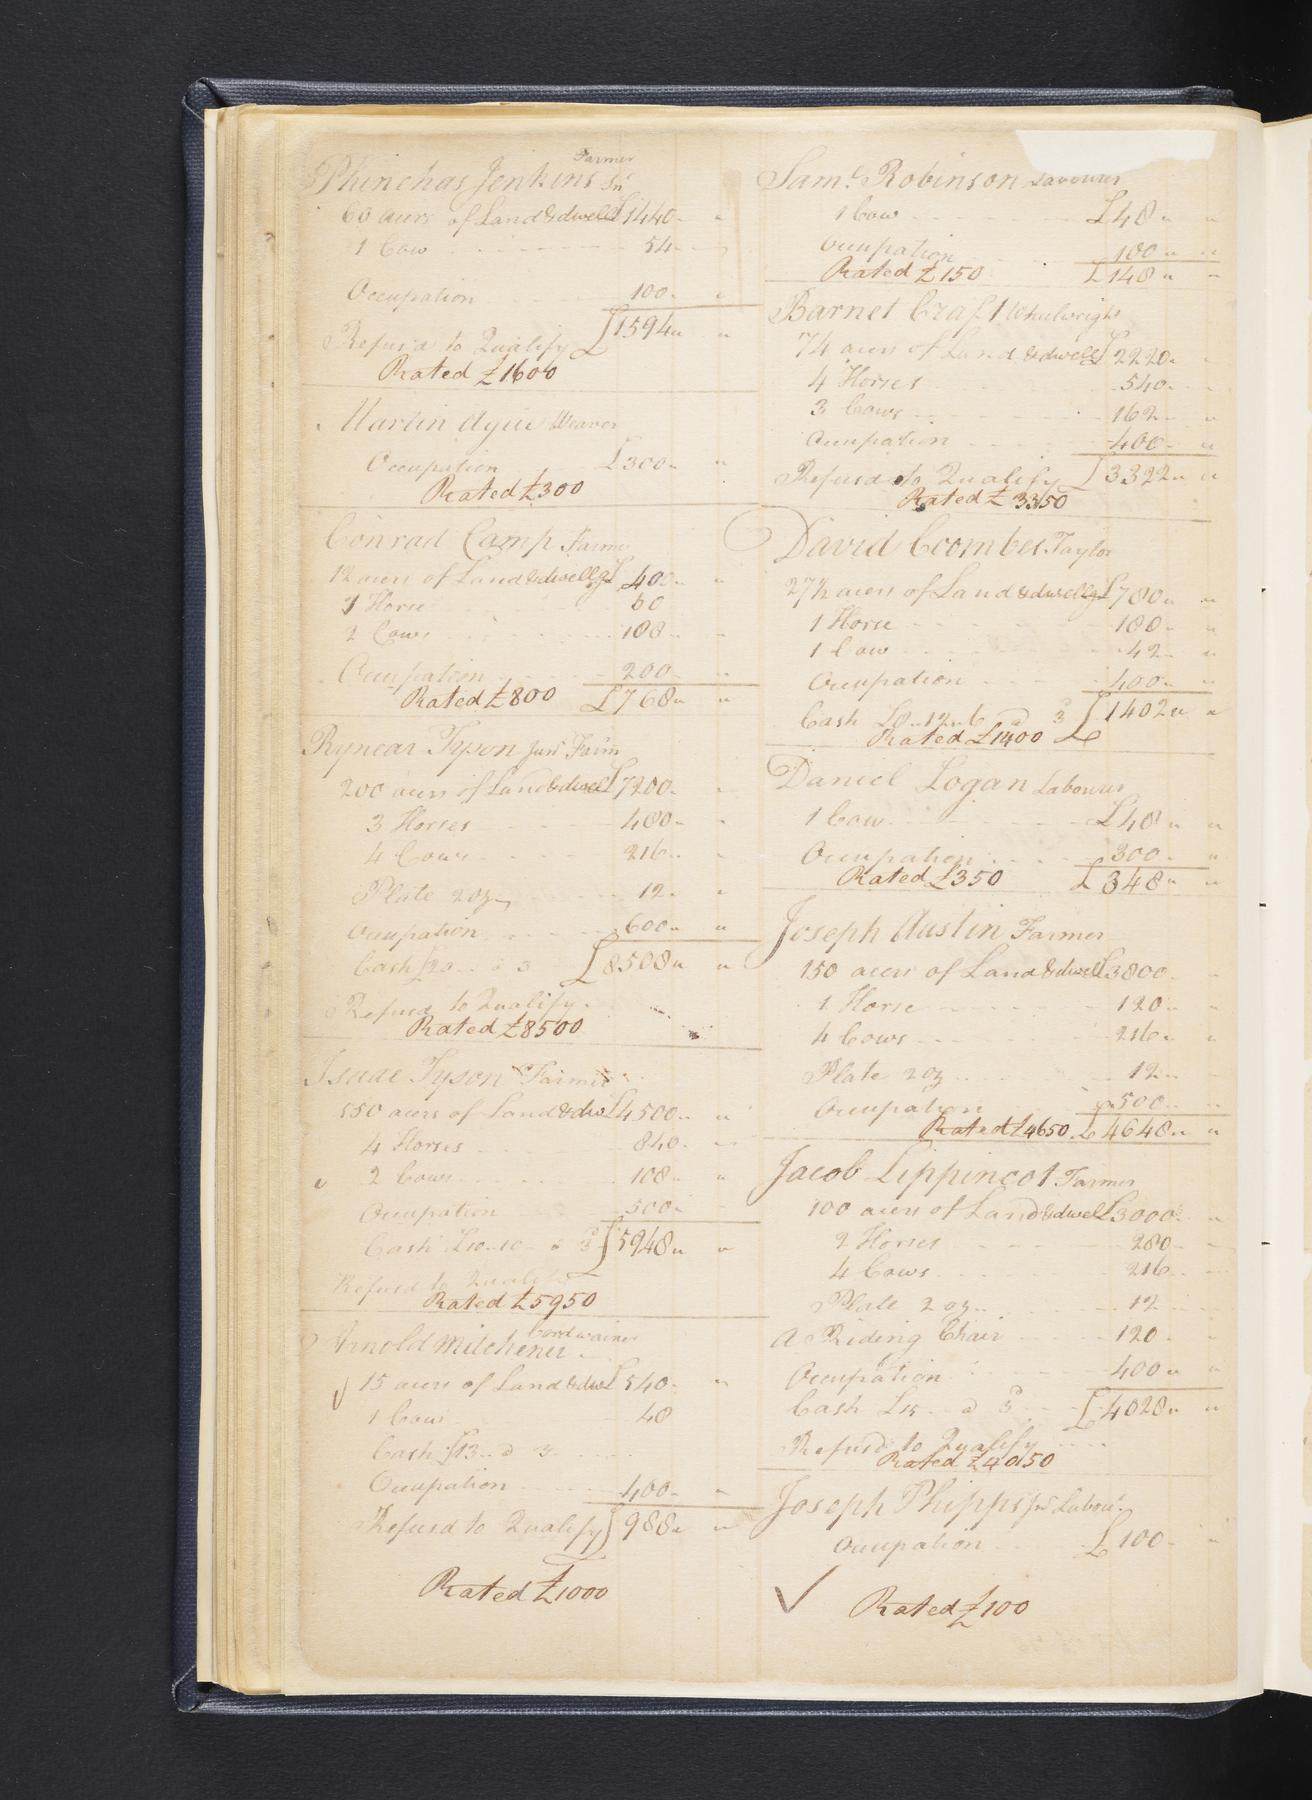 Farmer
Phinehas Jenkins Sn
60 acres of Land &dwell £1440
1 Cow 54
Occupation 100
£1594
Refusd to Qualify
Rated £1600
Martin Weaver
Occupation £300
Rated £300
Conrad Camp Farmr
12 acers of Land &dwellg £400
1 Horse 60
2 Cows 108
Occupation 200
Rated £800 £768
Rynear Tyson Junr Farm
200 acers of Land &dwel £7200
3 Horses 480
4 Cows 216
Plate 2 oz 12
Occupation 600
Cash £20 a 3 £8508
Refusd to Qualify
Rated £8500
Isaac Tyson Farmer
150 acers of Land &dw £4500
4 Horses 840
2 Cows 108
Occupation 500
Cash £10..10 a 3 £5948
Refusd to Qualify
Rated £5950
Cordwainer
Arnold Mitchener
15 acers of Land &dwel £540
1 Cow 48
Cash £13 a 3
Occupation 400
Refusd to Qualify £988
Rated £1000
Saml. Robinson Labourer
1 Cow £48
Occupation 100
Rated £150 £148
Barnet Craft Wheelwright
74 acers of Land &dwell £2220
4 Horses 540
3 Cows 162
Occupation 400
Refusd to Qualify £3322
Rated £3350
David Coombes Taylor
27½ acers of Land &dwellg £780
1 Horse 180
1 Cow 42
Occupation 400
Cash £0..12..6 a 3 £1402
Rated £1400
Daniel Logan Labourer
1 Cow £48
Occupation 300
Rated £350 £348
Joseph Austin Farmer
150 acers of Land &dwell £3800
1 Horse 120
4 Cows 216
Plate 2 oz 12
Occupation 500
Rated £4650 £4648
Jacob Lippincot Farmer
100 acers of Land &dwel £3000
2 Horses 280
4 Cows 216
Plate 2 oz 12
A Riding Chair 120
Occupation 400
Cash £15 a 3 £4028
Refusd to Qualify
Rated £4050
Joseph Phipps Jnr Labour
Occupation £100
Rated £100